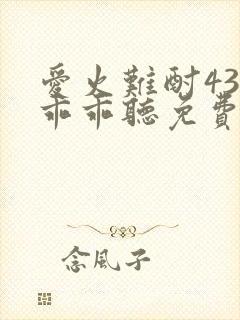 愛火難酎43
乖乖聽免費
念風子